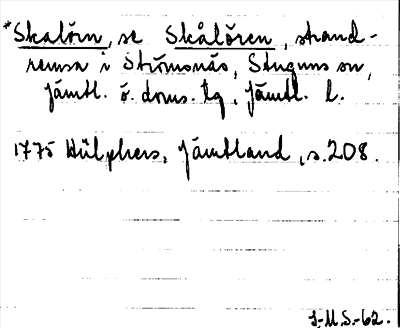 *Skalörn, se Skålören, strand-
remsa i Strömsnäs, Stuguns sn,
Jämtl. ö. doms. tg, Jämtl. l.
1775 Hülphers, Jämtland, s. 208.
J-M.S.-62.